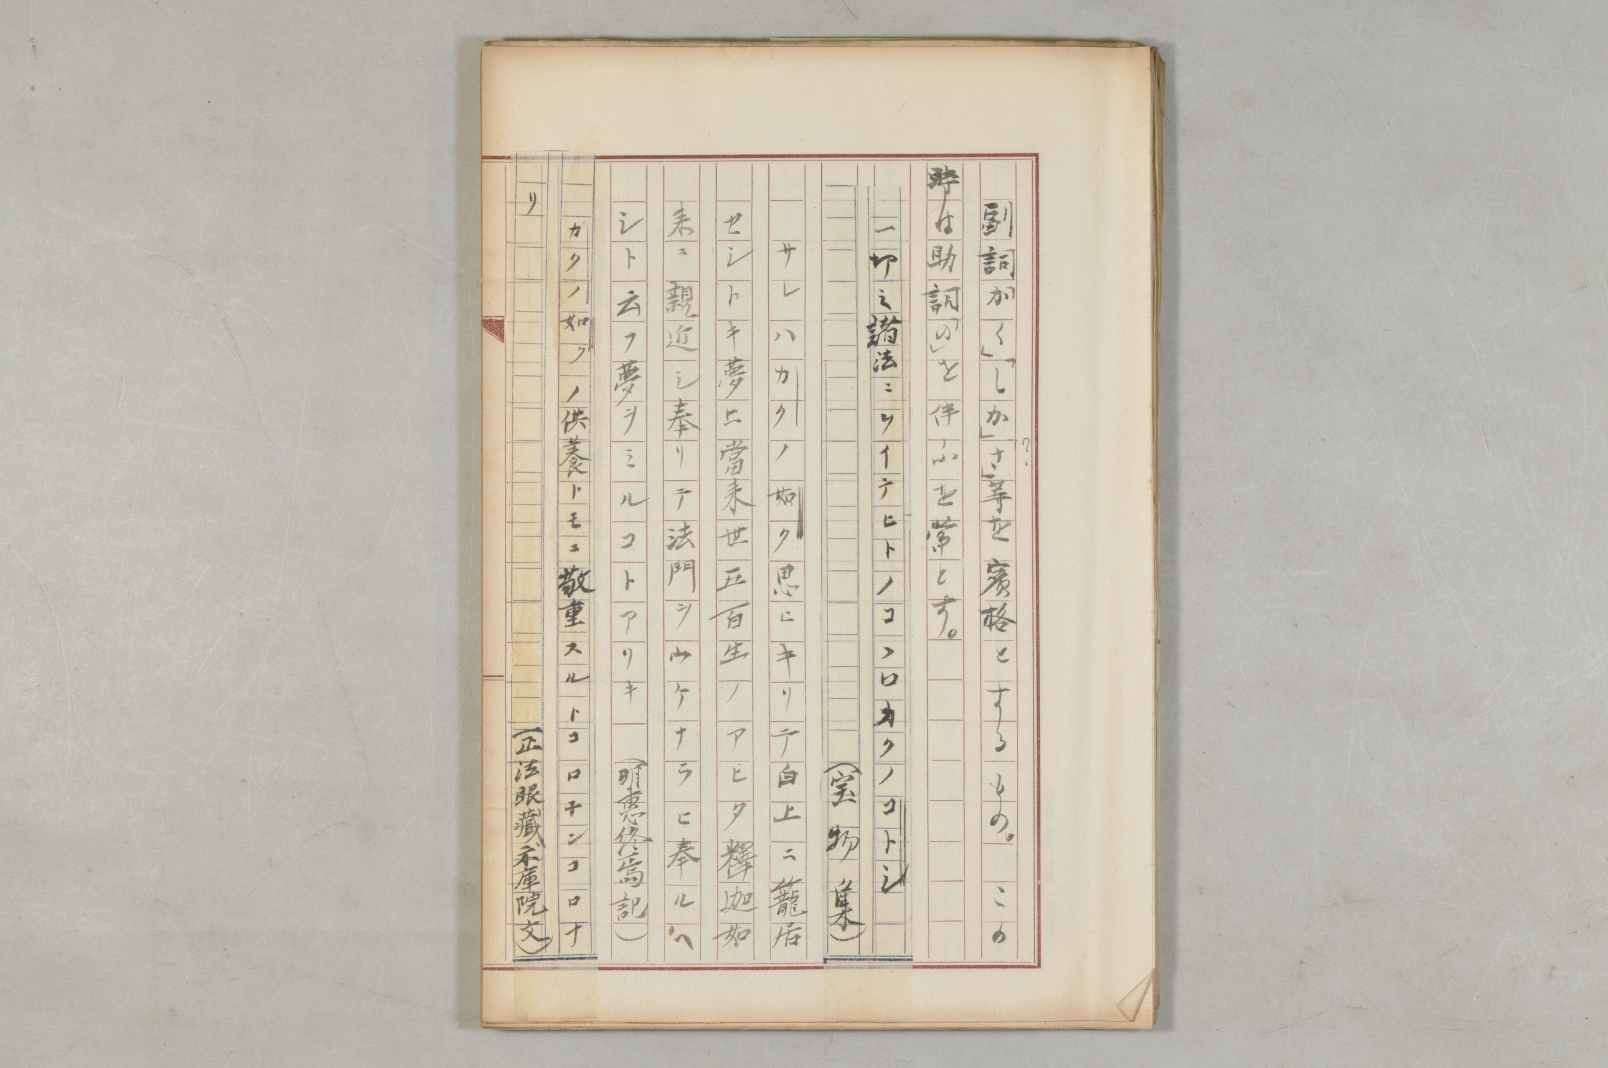 副詞かく」「しか」さ」等を賓格とするもの。この
時は助詞「の」を伴ふを常とす。
一切ミ諸法ニツイテヒトノコヽロカクノコトシ
(宝物集)
サレハカクノ如ク思ヒキリテ白上ニ籠居
セシトキ夢ニ當来世五百生ノアヒタ釋迦如
来ニ親近シ奉リテ法門ヲウケナラヒ奉ルヘ
シト云フ夢ヲミルコトアリキ (明恵終焉記)
カクノ如クノ供養トモニ敬重スルトコロチンコロナ
リ
(正法眼藏示庫院文)